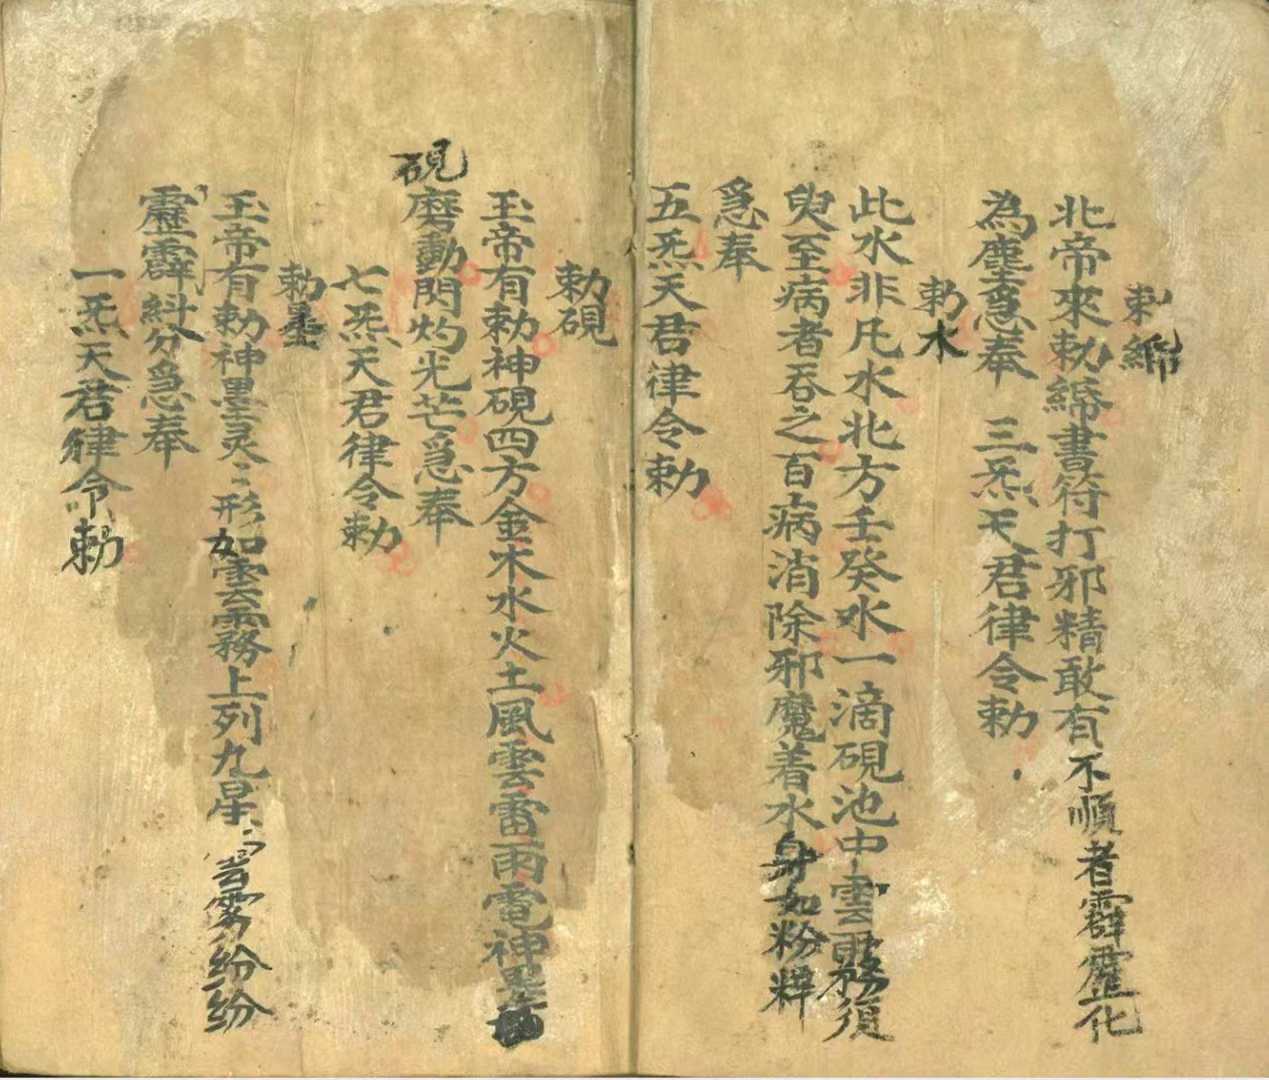 勅𥿄
北帝來勅締書符打邪精敢有不順者霹靂化
為塵急奉 三炁天君律令勅
勅水
此水非凡水北方壬癸水一滴硯池中雲霧須
臾至病者吞之百病消除邪魔着水身如粉粹
急奉
五炁天君律令勅
勅硯
玉帝有勅神硯四方金木水火土風雲雷雨電神墨
硯磨動閃灼光芒急奉
七炁天君律令勅
勅墨
玉帝有勅神墨灵〻形如雲霧上列九星〻雲雾紛紛
靂霹糾分急奉
一炁天君律令勅